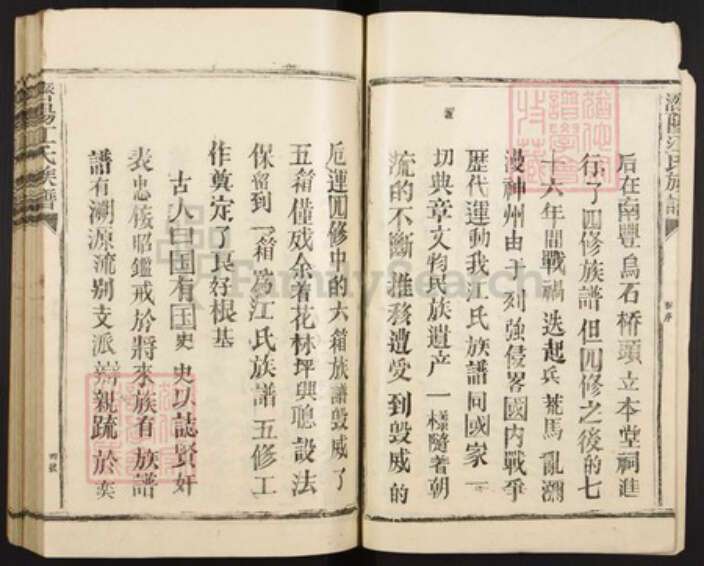 后在南豐烏石橋頭立本堂祠進
行了四修族譜但四修之後的七
十六年間戰禍迭起兵荒馬亂瀰
漫神州由于列強侵畧國内戰爭
歷代運動我江氏族譜同國家一
切典章文物民族遺产一樣隨著朝
流的不斷推移遭受到毀威的
厄運四修中的六箱族譜毀威了
五箱僅残余着花林坪與聰設法
保留到一箱為江氏族譜五修工
作奠定了良好根基
古人曰国有国史史以誌賢奸
表忠佞昭鑑戒於將來族有族譜
譜有溯源流别支派辨親疏於矣
江氏族譜
江氏族譜
序
FamilySearch